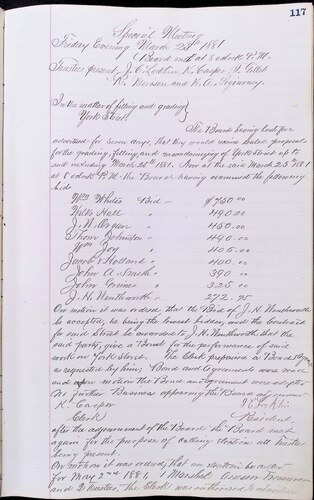 117
Special Meeting
Friday Evening March 25th 1881
Board met at 8 oclock P.M.
Trustees present J. C. K. Casper
In the matter of filling and grading
York Street
The Board having heretofore
advertised for seven days, that they would receive sealed proposals
for the grading, filling, and macadamizing of York Street up to
and including March 25th 1881. Now on the said March 25th 1881
at 8 oclock P.M. the Board having examined the following
bids
Wm White's Bid - $750.00
Nills Hall " 490.00
J. W. Organ " 450.00
Thom Johnston - 490.00
Wm Joy " 405.00
Jacob Holland " 400.00
John A. Smith " 390.00
John Grimes " 325.00
J. H. Wentworth " 272.75
On motion it was ordered that the Bid of J. H. Wentworth
be accepted, he being the lowest bidder, and the Contract
for said Street be awarded to J. H. Wentworth that the
said party, give a Bond for the performance of said
work on York Street. The Clerk prepared a Bond
as requested by him, Bond and Agreements were read
and upon motion the Bond and agreement were accepted
No further Business appearing the Board adjourned
K. Casper
Clerk President
after the adjournment of the Board the Board met
again for the purpose of calling election all trustees
being present.
On motion it was ordered, that an election be called
for May 2nd 1881, 1 Marshal Assessor Treasurer
and 2 trustees, the Clerk was authorized to